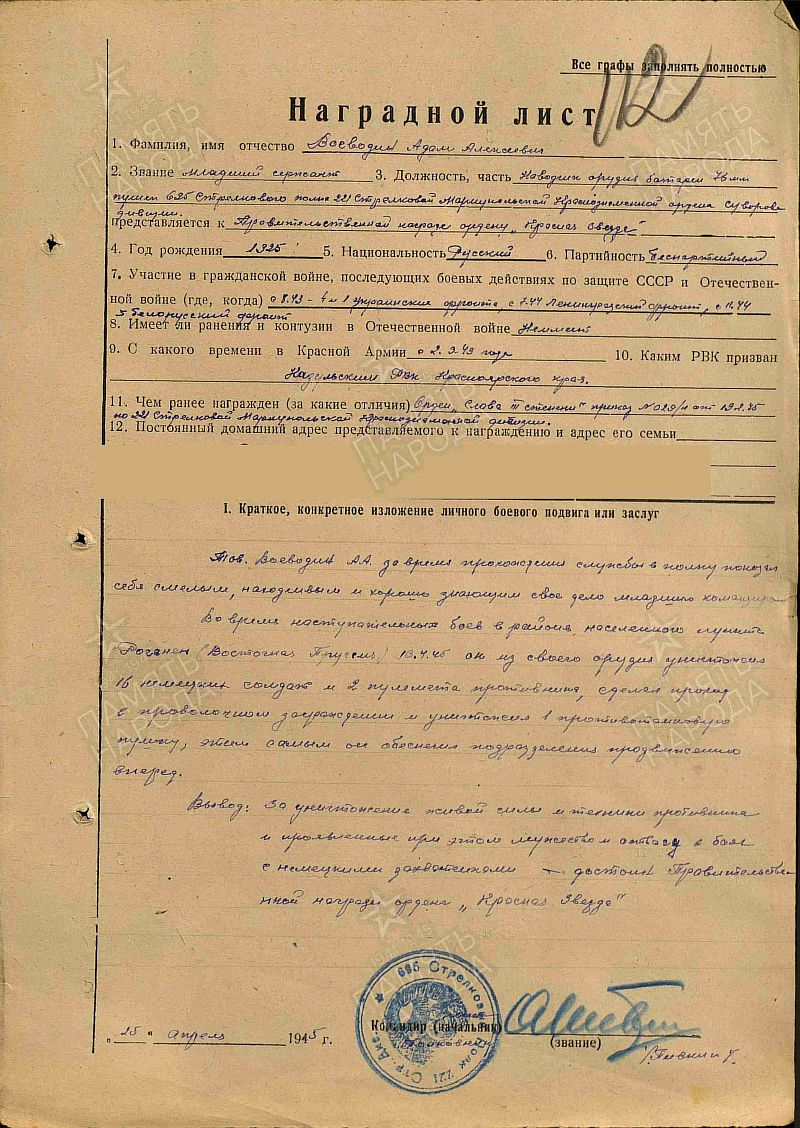 Все графы заполнять полностью
112
Наградной лист
1. Фамилия, имя отчество Воеводин Адам Алексеевич
2. Звание младший сержант 3. Должность, часть Наводчик орудия батареи 76 мм
пушек 695 Стрелкового полка 221 Стрелковой Мариупольской Краснознаменной ордена Суворова
дивизии.
представляется к Правительственной награде ордену „Красная Звезда"
4. Год рождения 1925 г. 5. Национальность Русский 6. Партийность беспартийный
7. Участие в гражданской войне, последующих боевых действиях по защите СССР и Отечествен-
ной войне (где, когда) с 8.43 – 4 и 1 Украинские фронта, с 7.44 Ленинградский фронт, с 11.44
3 Белорусский фронт
8. Имеет ли ранения и контузии в Отечественной войне Не имеет
9. С какого времени в Красной Армии с 2.2.43 года 10. Каким РВК призван
РВК Красноярского края.
11. Чем ранее награжден (за какие отличия) Орден „Слава III степени" приказ № 029/н от 19.2.45
по 221 Стрелковой Мариупольской Краснознаменной дивизии.
12. Постоянный домашний адрес представляемого к награждению и адрес его семьи
I. Краткое, конкретное изложение личного боевого подвига или заслуг
Тов. Воеводин А.А. за время прохождения службы в полку показал
себя смелым, находчивым и хорошо знающим свое дело младшим командиром
Во время наступательных боев в районе населенного пункта
(Восточная Пруссия) 13.4.45 он из своего орудия уничтожил
16 немецких солдат и 2 пулемета противника, сделал проход
в проволочном заграждении и уничтожил 1 противотанковую
пушку, этим самым он обеспечил подразделению продвижению
вперед.
Вывод: За уничтожение живой силы и техники противника
и проявленные при этом мужество и отвагу в боях
с немецкими захватчиками — достоин Правительстве-
нной награды ордена „Красная Звезда"
695 Стрелковый полк 221 Стр. Див.
Командир (начальник)
Полковник
(звание)
„25" апреля 1945 г.
ПАМЯТЬ НАРОДА